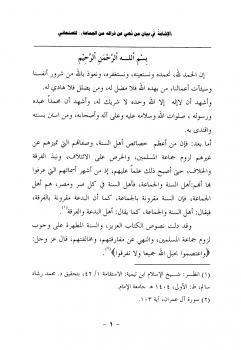 الإشاعة في بيان من نهي عن فراقه من الجماعة، للصنعاني
بِسْمِ اللهِ الرَّحْمَنِ الرَّحِيمِ
إن الحمد لله، نحمده ونستعينه، ونستغفره، ونعوذ بالله من شرور أنفسنا
وسيئات أعمالنا، من يهده الله فلا مضل له، ومن يضلل فلا هادي له
وأشهد أن لا إله إلا الله وحده لا شريك له، وأشهد أن محمداً عبده
ورسوله، صلوات الله وسلامه عليه وعلى آله وأصحابه، ومن استن بسنته
أما بعد: فإن من أعظم خصائص أهل السنة، وصفاتهم التي تميزهم عن
غيرهم لزوم جماعة المسلمين، والحرص على الائتلاف، ونبذ الفرقة
والخلاف، حتى أصبح ذلك علماً عليهم، إذ من أشهر أسمائهم التي عرفوا
بها أنهم: أهل السنة والجماعة، فأهل السنة في كل عصر ومصر، هم أهل
الجماعة، فإن السنة مقرونة بالجماعة، كما أن البدعة مقرونة بالفرقة،
فيقال: أهل السنة والجماعة، كما يقال: أهل البدعة والفرقة(١).
وقد دلت نصوص الكتاب العزيز، والسنة المطهرة على وجوب
لزوم جماعة المسلمين، والنهي عن مفارقتهم، ومخالفتهم، قال عز وجل:
﴿واعتصموا بحبل الله جميعا ولا تفرقوا﴾(٢).
(١) انظر: شيخ الإسلام ابن تيمية: الاستقامة ٤٢/١، بتحقيق د. محمد رشاد
سالم، ط: الأولى، ١٤٠٤ هـ، جامعة الإمام.
(٢) سورة آل عمران، آية ١٠٣.
- ١ -